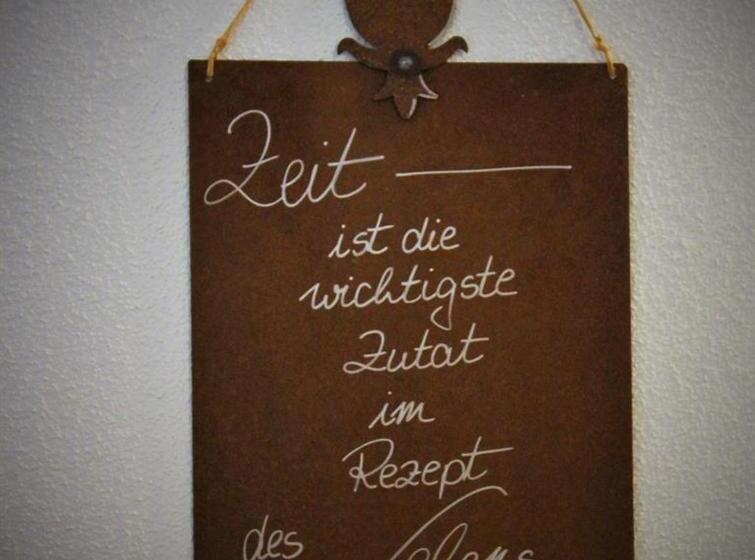 Zeit —
ist die
wichtigste
Zutat
im
Rezept
des Lebens